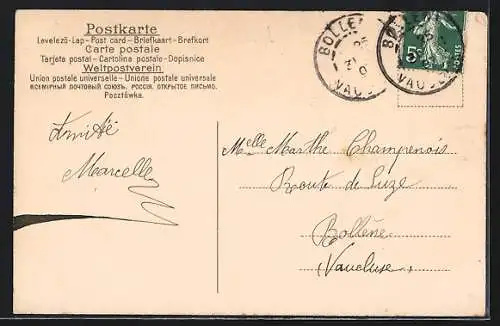 Postkarte
Levelező-Lap - Post card - Briefkaart - Brefkort
Carte postale
Tarjeta postal - Cartolina postale - Dopisnice
Weltpostverein
Union postale universelle - Unione postale universale
ВСЕМІРНЫЙ ПОЧТОВЫЙ СОЮЗЪ. РОССІЯ. ОТКРЫТОЕ ПИСЬМО.
Pocztówka.
BOLLE
VAUC
BOLL
VAUCL
5c
POSTES
Amitié
Marcelle
Melle Marthe Champenois
Route de Suze
Bollène
(Vaucluse)